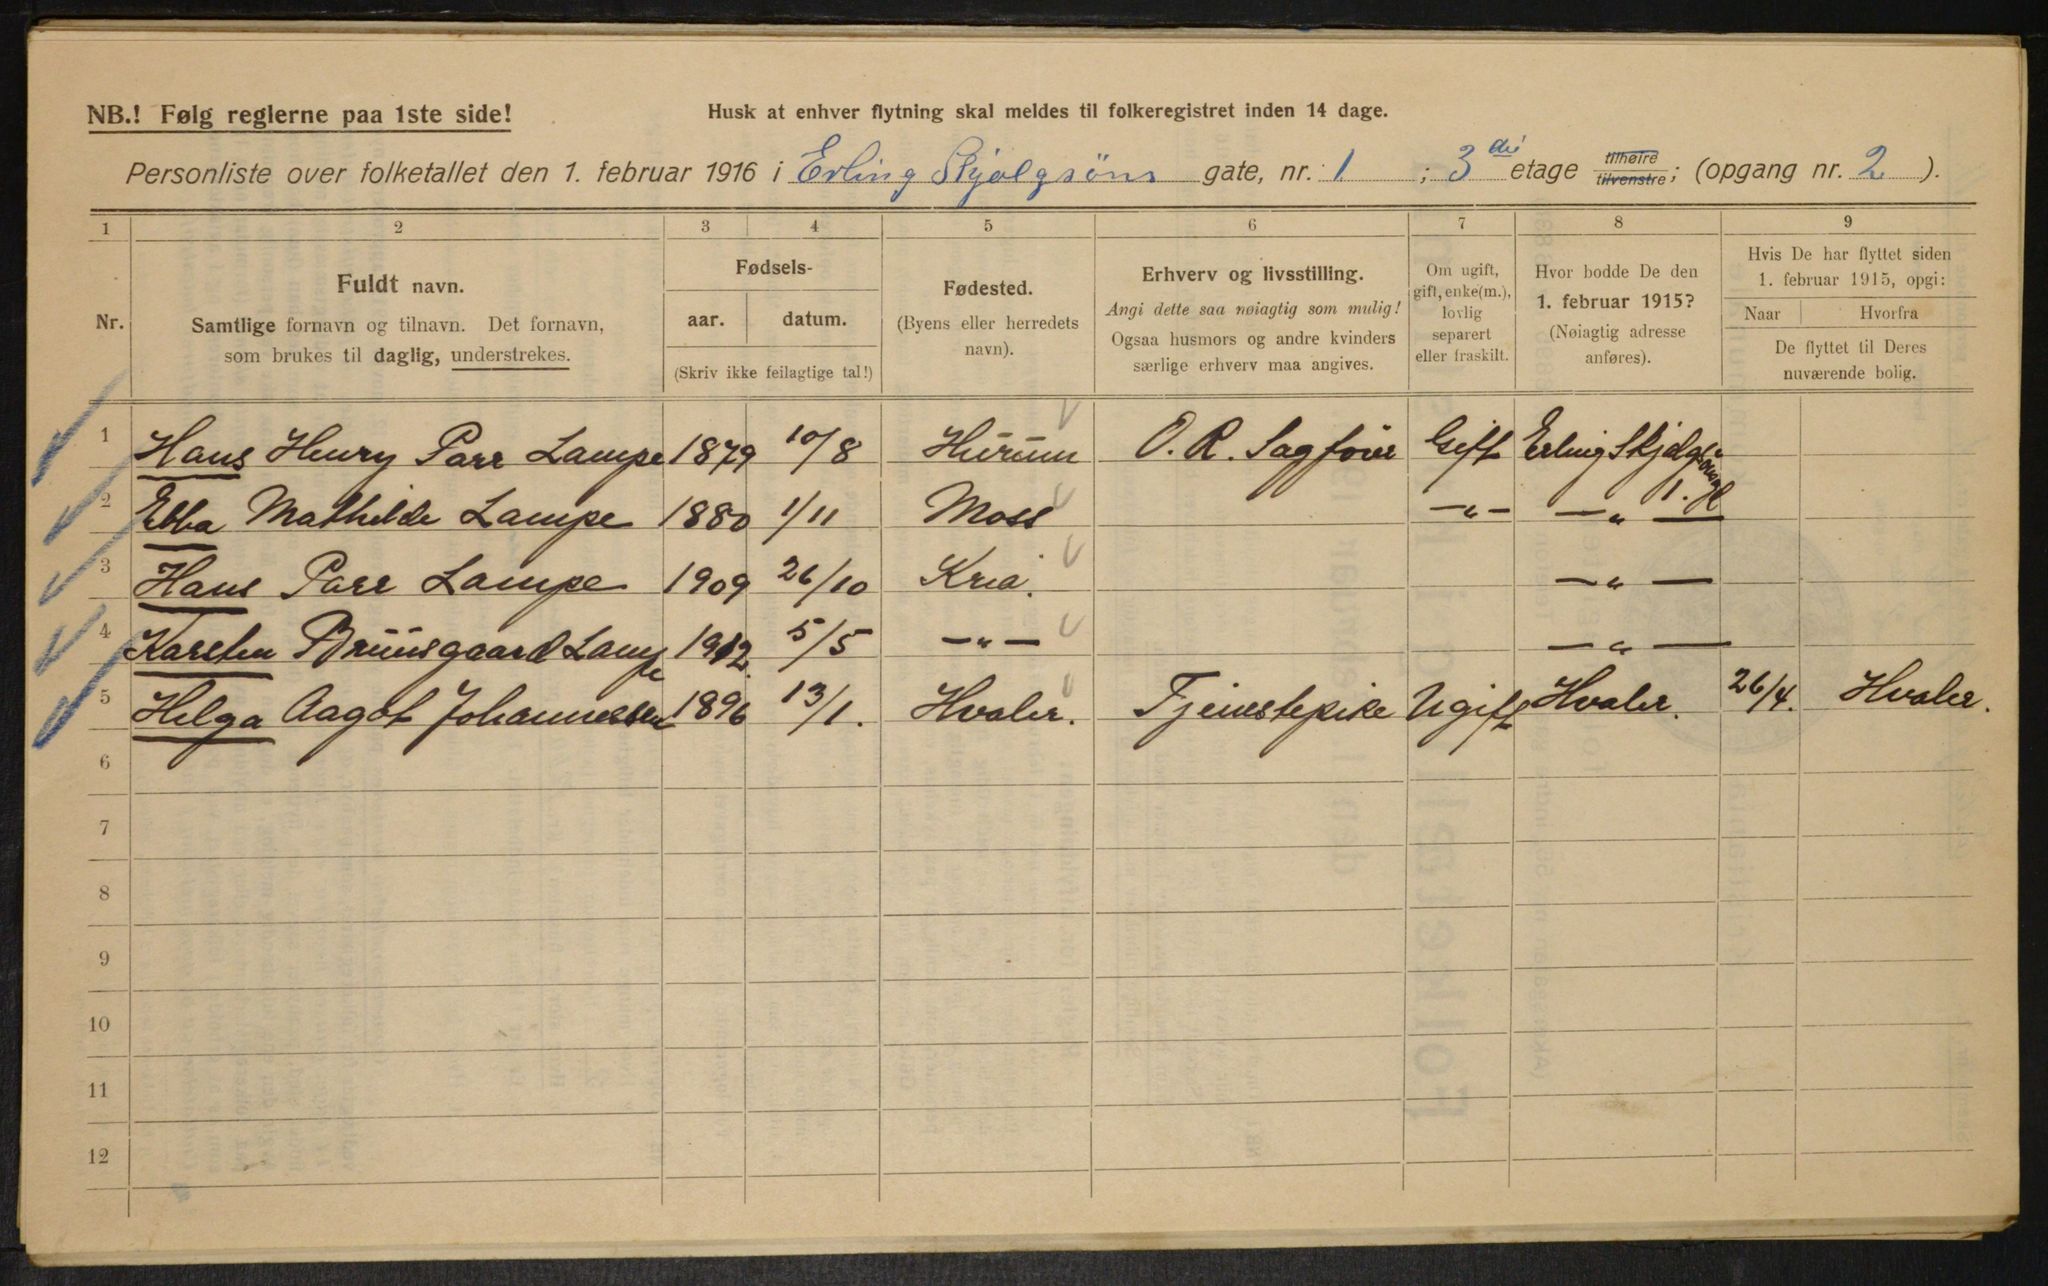 NB.! Følg reglerne paa 1ste side!
Husk at enhver flytning skal meldes til folkeregistret inden 14 dage.
Personliste over folketallet den 1. februar 1916 i Erling Skjalgsøns gate, nr. 1 ; 3die etage tilhøire tilvenstre; (opgang nr. 2 ).
1 2 3 4 5 6 7 8 9
Nr.
Fuldt navn.
Samtlige fornavn og tilnavn. Det fornavn,
som brukes til daglig, understrekes.
Fødsels-
aar. datum.
(Skriv ikke feilagtige tal!)
Fødested.
(Byens eller herredets
navn).
Erhverv og livsstilling.
Angi dette saa nøiagtig som mulig!
Ogsaa husmors og andre kvinders
særlige erhverv maa angives.
Om ugift,
gift, enke(m.),
lovlig
separert
eller fraskilt.
Hvor bodde De den
1. februar 1915?
(Nøiagtig adresse
anføres).
Hvis De har flyttet siden
1. februar 1915, opgi:
Naar Hvorfra
De flyttet til Deres
nuværende bolig.
1 Hans Henry Parr Lampe 1879 10/8 Hurum O. R. Sagfører Gift Erling Skjalgsønsgt 1.
2 Ebba Mathilde Lampe 1880 1/11 Moss —„— —„—
3 Hans Parr Lampe 1909 26/10 Kria. —„—
4 Karsten Bruusgaard Lampe 1912. 5/5 —„— —„—
5 Helga Aagot Johannessen 1896 13/1. Hvaler. Tjenestepike Ugift Hvaler. 26/4. Hvaler.
6
7
8
9
10
11
12